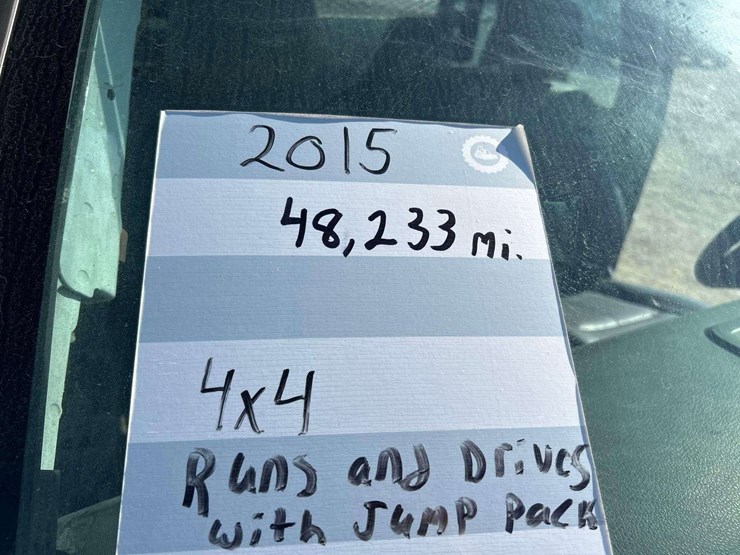 2015
48,233 mi.
4x4
Runs and Drives
with Jump Pack